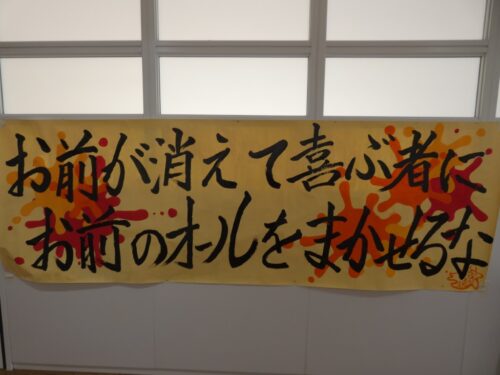 お前が消えて喜ぶ者に
お前のオールをまかせるな